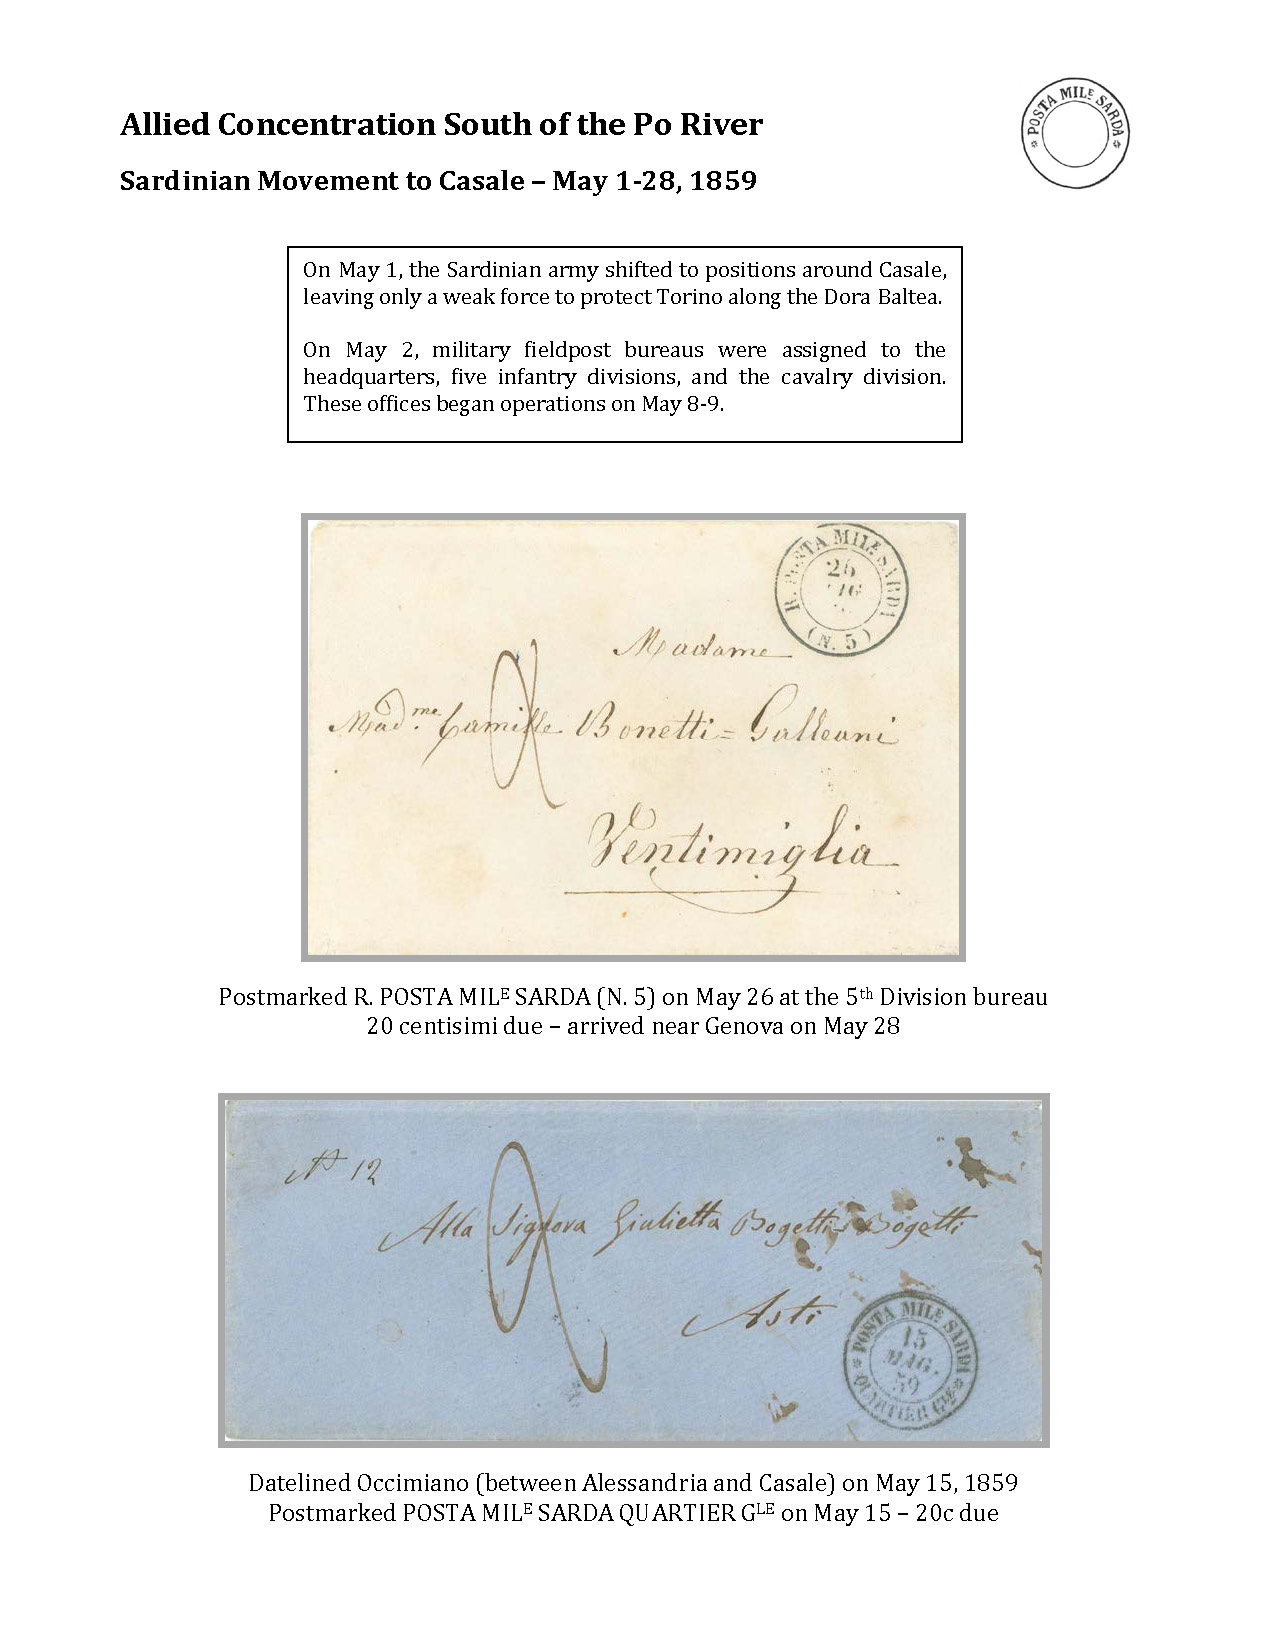 Allied Concentration South of the Po River
POSTA MILE SARDA
Sardinian Movement to Casale – May 1-28, 1859
On May 1, the Sardinian army shifted to positions around Casale,
leaving only a weak force to protect Torino along the Dora Baltea.
On May 2, military fieldpost bureaus were assigned to the
headquarters, five infantry divisions, and the cavalry division.
These offices began operations on May 8-9.
R. POSTA MILE SARDA
26
(N. 5)
Madame
Madme Camille Bonetti=Galleani
Ventimiglia
Postmarked R. POSTA MILE SARDA (N. 5) on May 26 at the 5th Division bureau
20 centisimi due – arrived near Genova on May 28
No 12
Alla Signora Giulietta Bogetti=Bogetti
Asti
POSTA MILE SARDA
15
MAG.
59
QUARTIER GLE
Datelined Occimiano (between Alessandria and Casale) on May 15, 1859
Postmarked POSTA MILE SARDA QUARTIER GLE on May 15 – 20c due